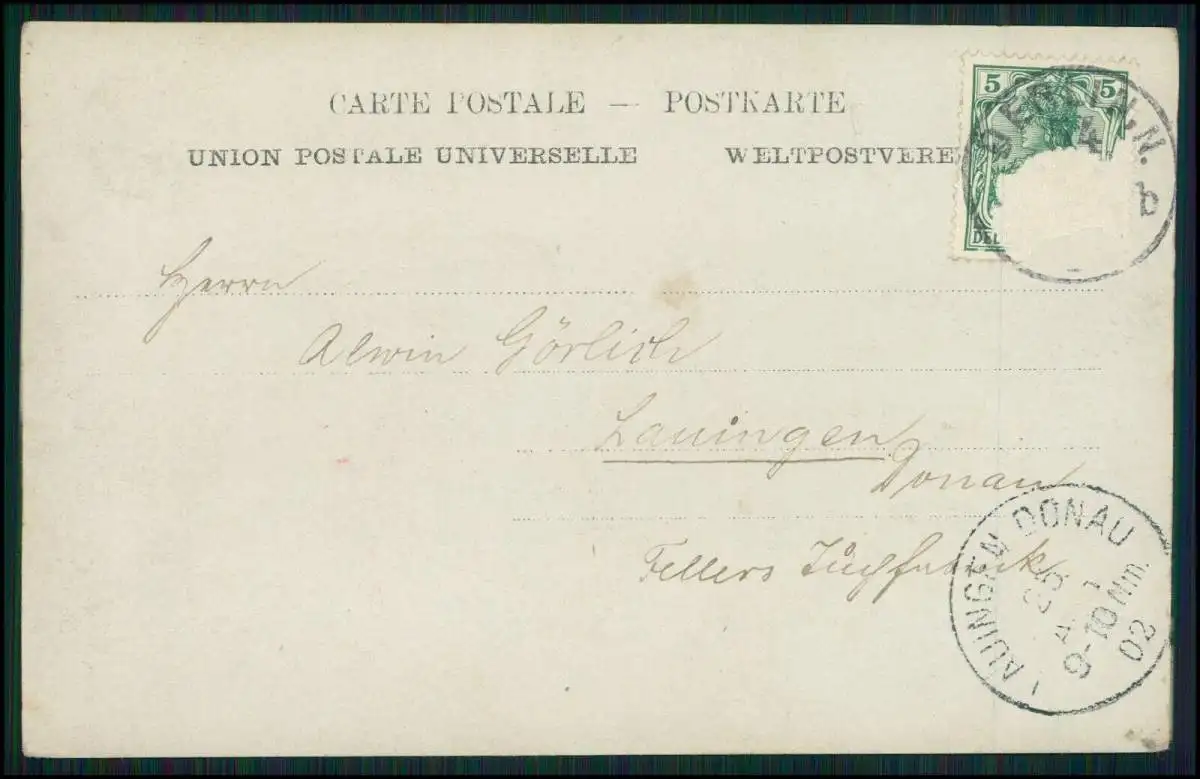 CARTE POSTALE — POSTKARTE
UNION POSTALE UNIVERSELLE WELTPOSTVERE
5 5
BERLIN, N.
4
b
Herrn
Alwin Görlich
Lauingen
Donau
Fellers Tuchfabrik
LAUINGEN DONAU
25
9-10 Nm.
02